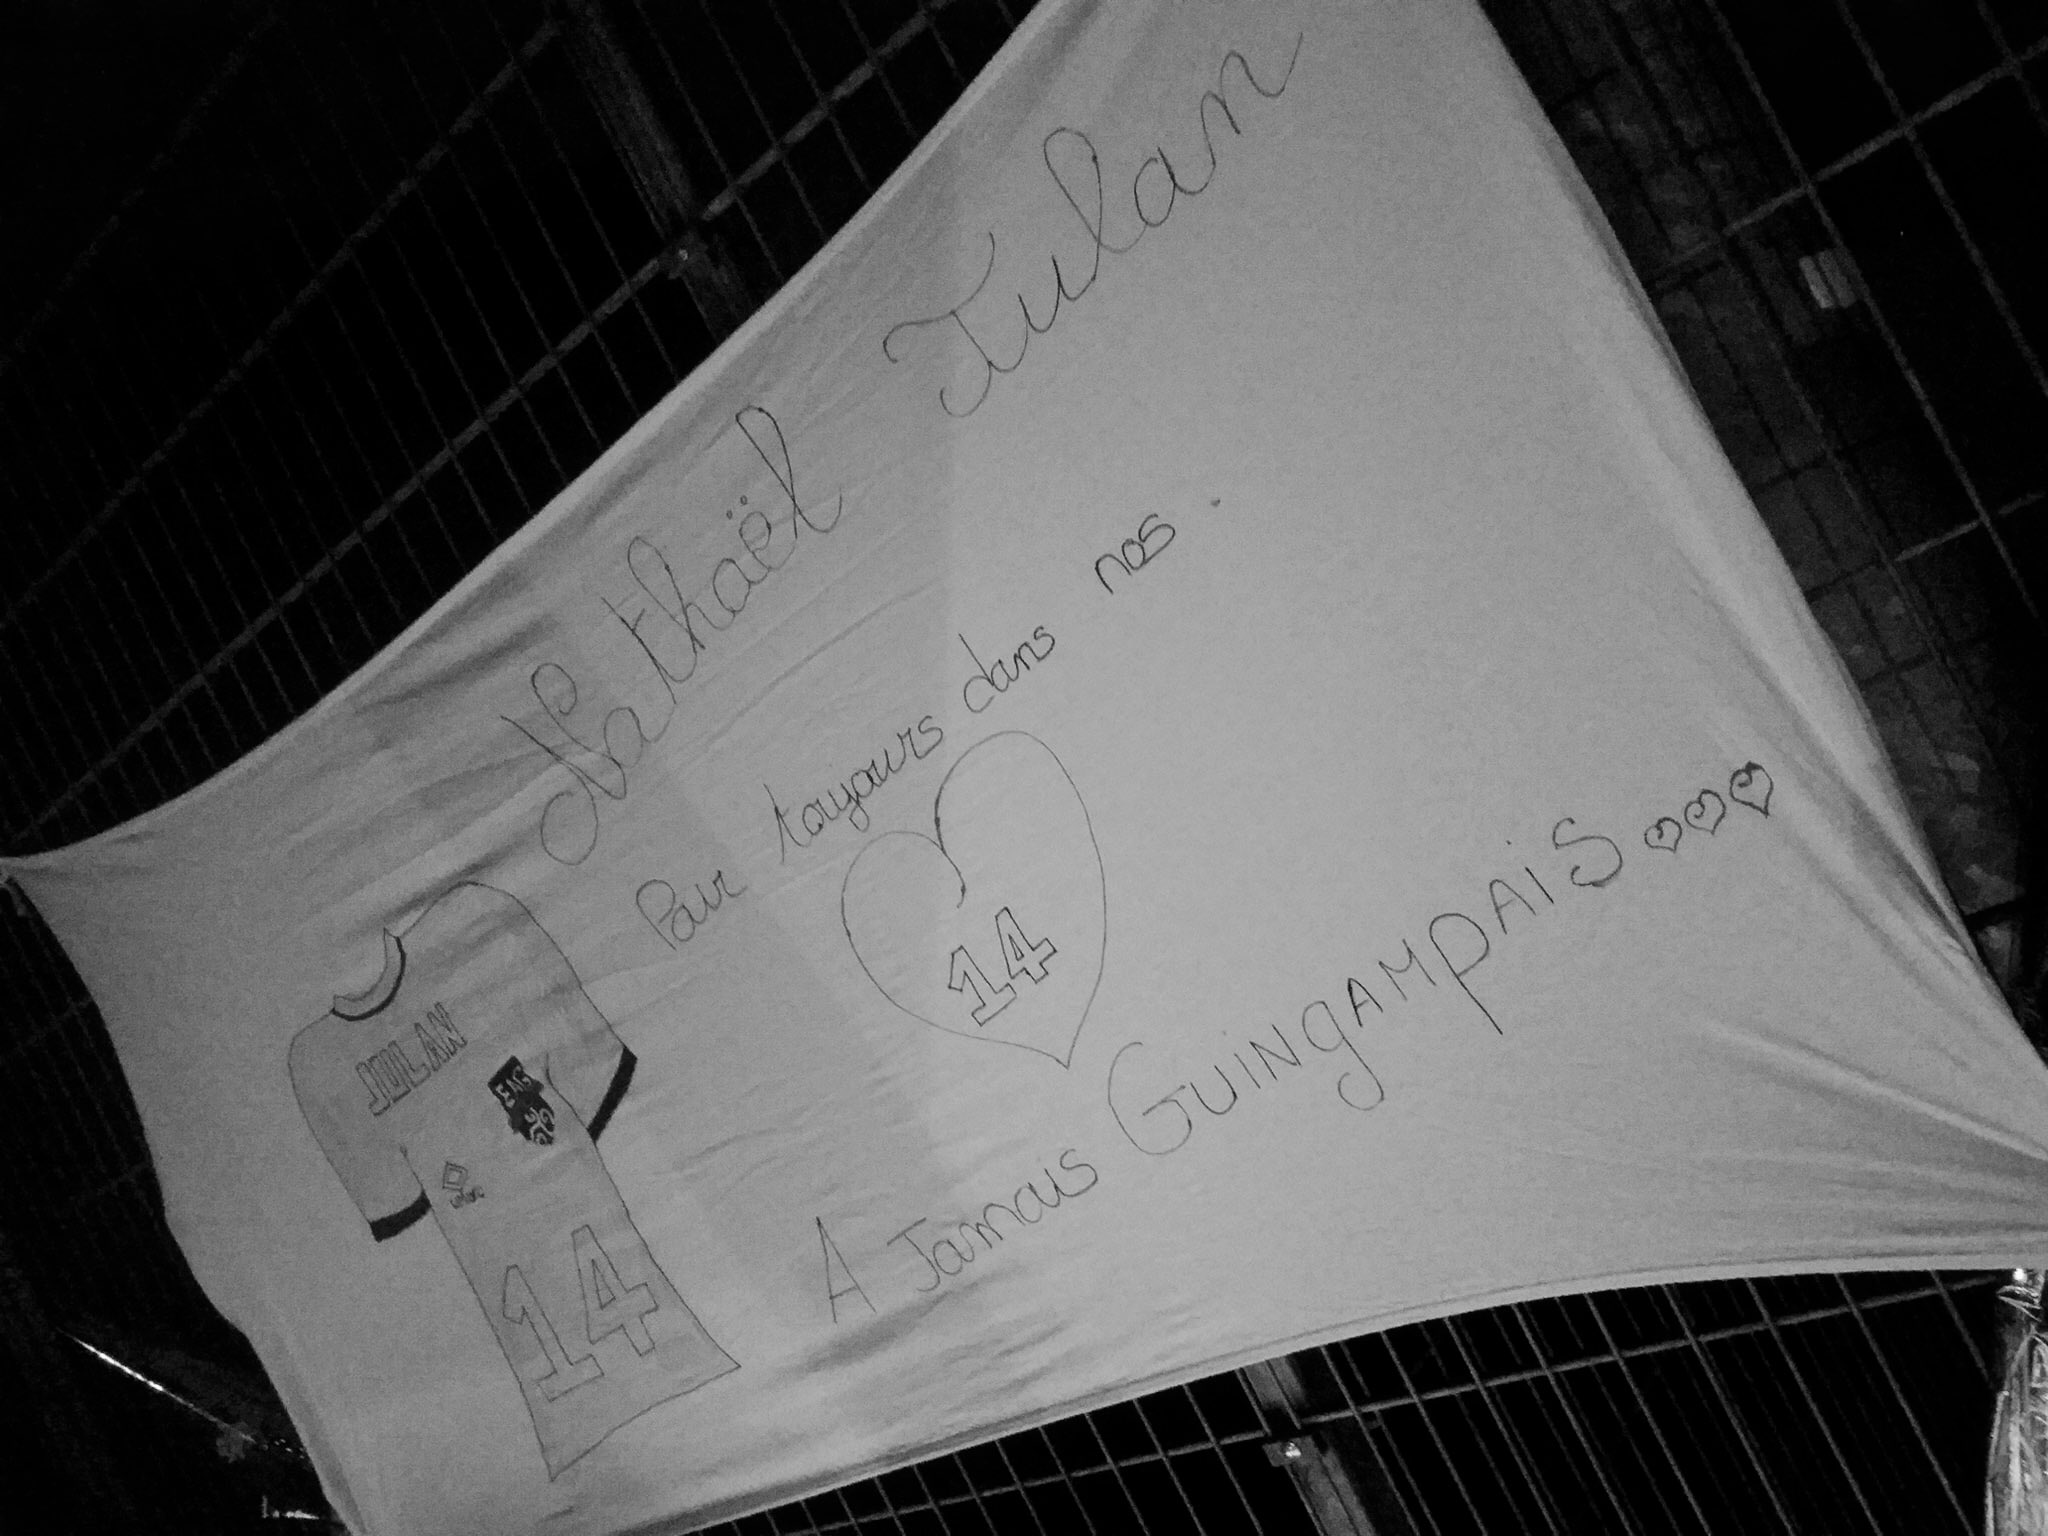 Nathaël Julan
Pour toujours dans nos .
14
A Jamais GUINGAMPAIS
JULAN
14